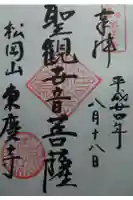 奉拝
平成廿年
八月十八日
聖観世音菩薩
松岡山
東慶寺